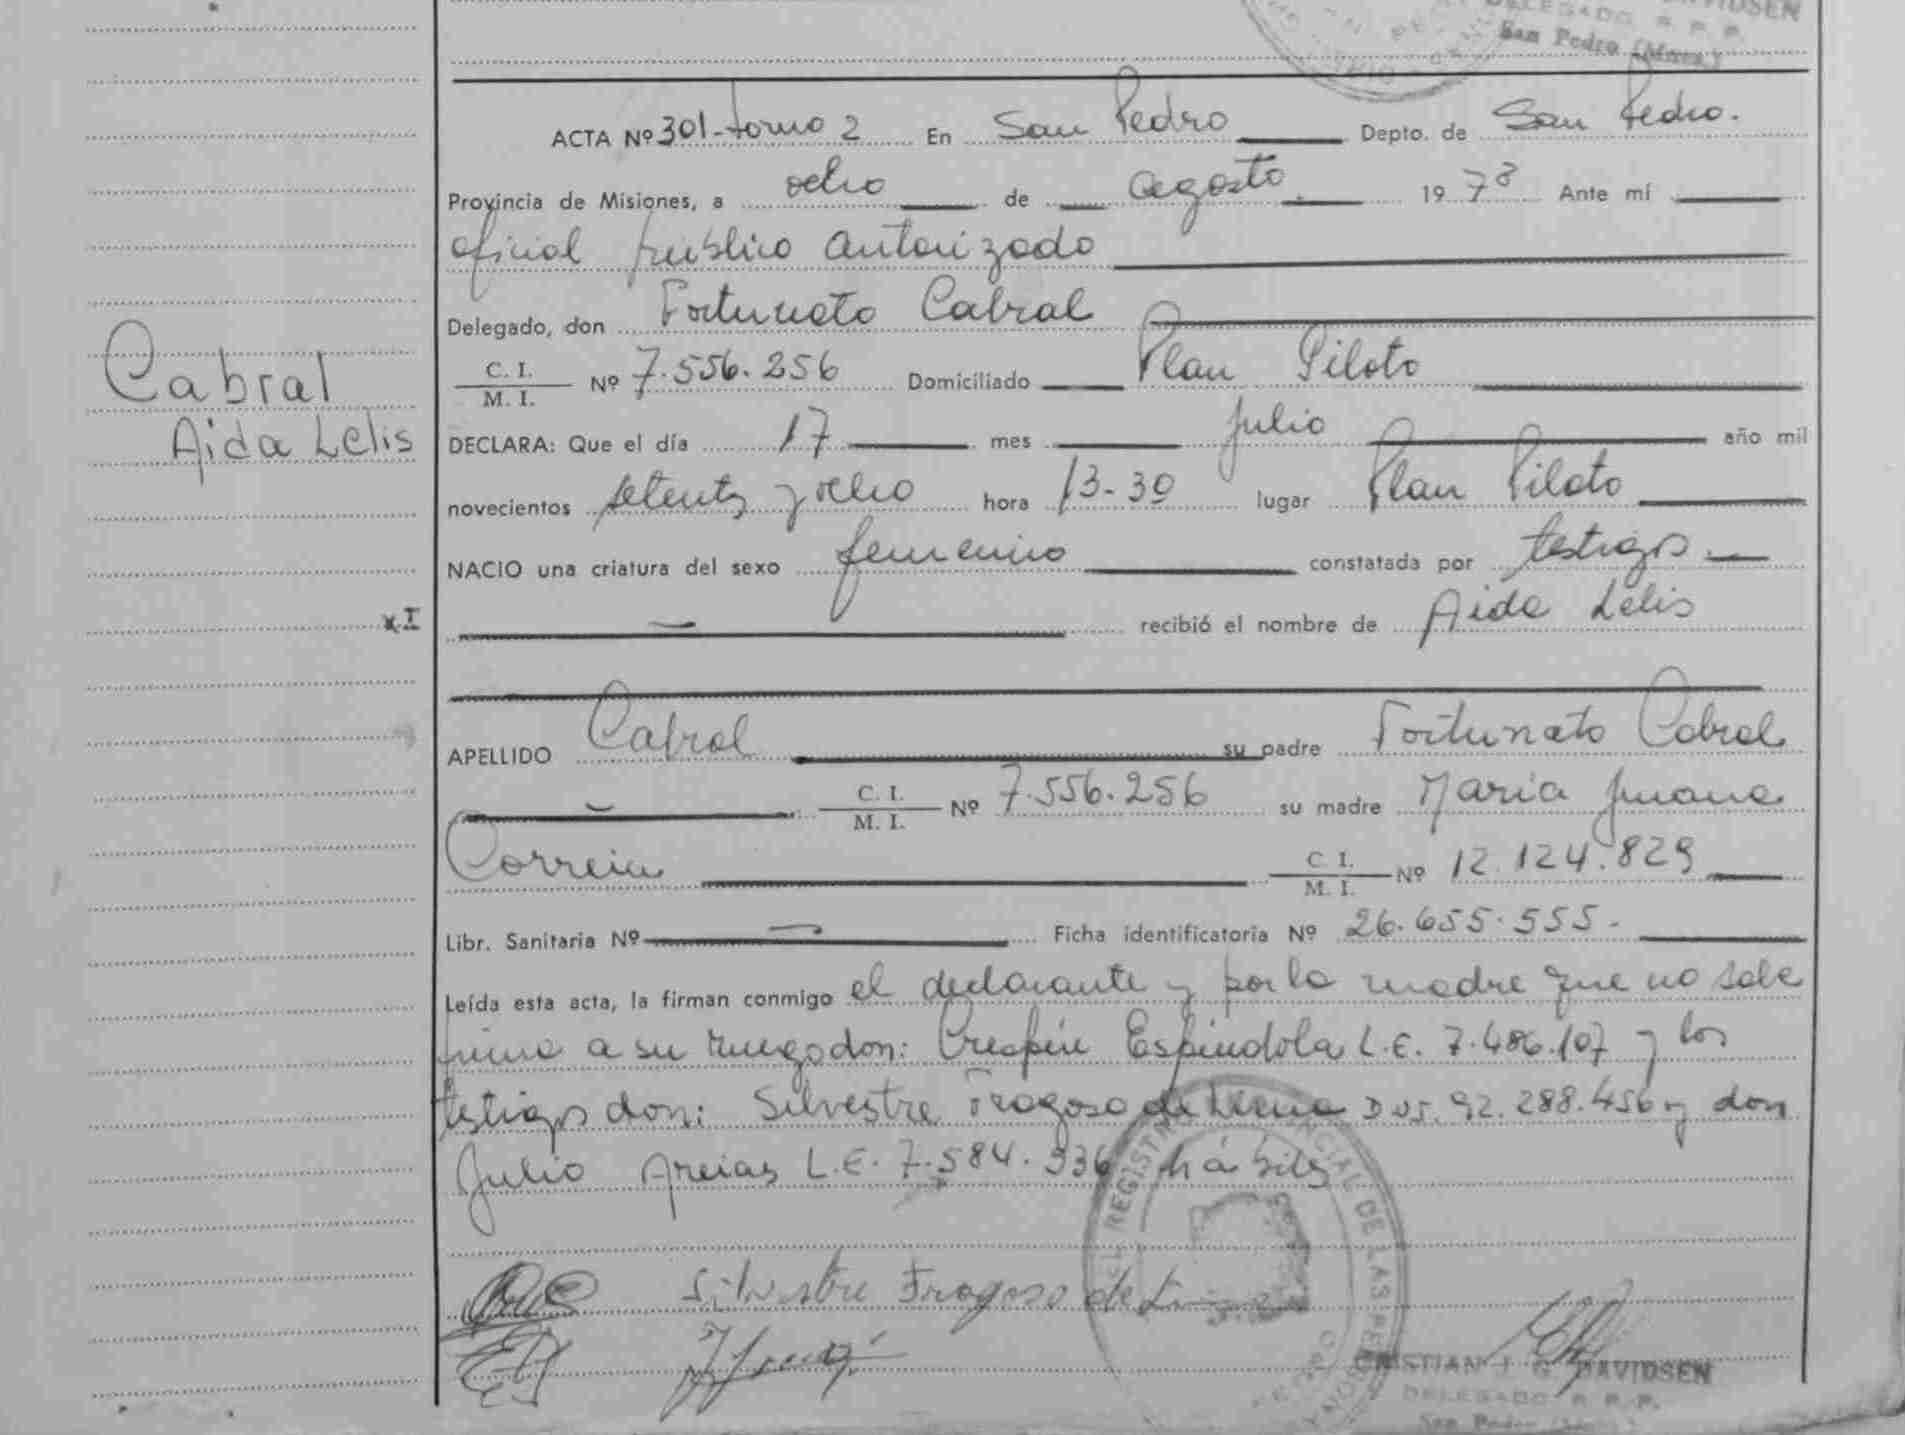 DAVIDSEN
DELEGADO R. P. P.
San Pedro (Mnes.)
ACTA Nº 301-tomo 2 En San Pedro Depto. de San Pedro.
Provincia de Misiones, a ocho de agosto 1978 Ante mí
oficial publico autorizado
Delegado, don Fortunato Cabral
C. I.
M. I. Nº 7.556.256 Domiciliado Plan Piloto
Cabral
Aida Lelis
DECLARA: Que el día 17 mes julio año mil
novecientos setenta y ocho hora 13-30 lugar Plan Piloto
NACIO una criatura del sexo femenino constatada por testigos
x I
recibió el nombre de Aida Lelis
APELLIDO Cabral su padre Fortunato Cabral
C. I.
M. I. Nº 7.556.256 su madre Maria Juana
Correia C. I.
M. I. Nº 12.124.829
Libr. Sanitaria Nº Ficha identificatoria Nº 26.655.555.-
Leída esta acta, la firman conmigo el declarante y por la madre que no sabe
firma a su ruego don: Crespin Espindola L.E. 7.486.107 y los
testigos don: Silvestre Fragoso de Lima 92.288.456 y don
Julio Areias L.E. 7.584.336 hábiles
Silvestre Fragoso de Li
REGISTRO PROVINCIAL DE LAS PE
CRISTIAN J. G. DAVIDSEN
DELEGADO R. P. P.
San Pedro